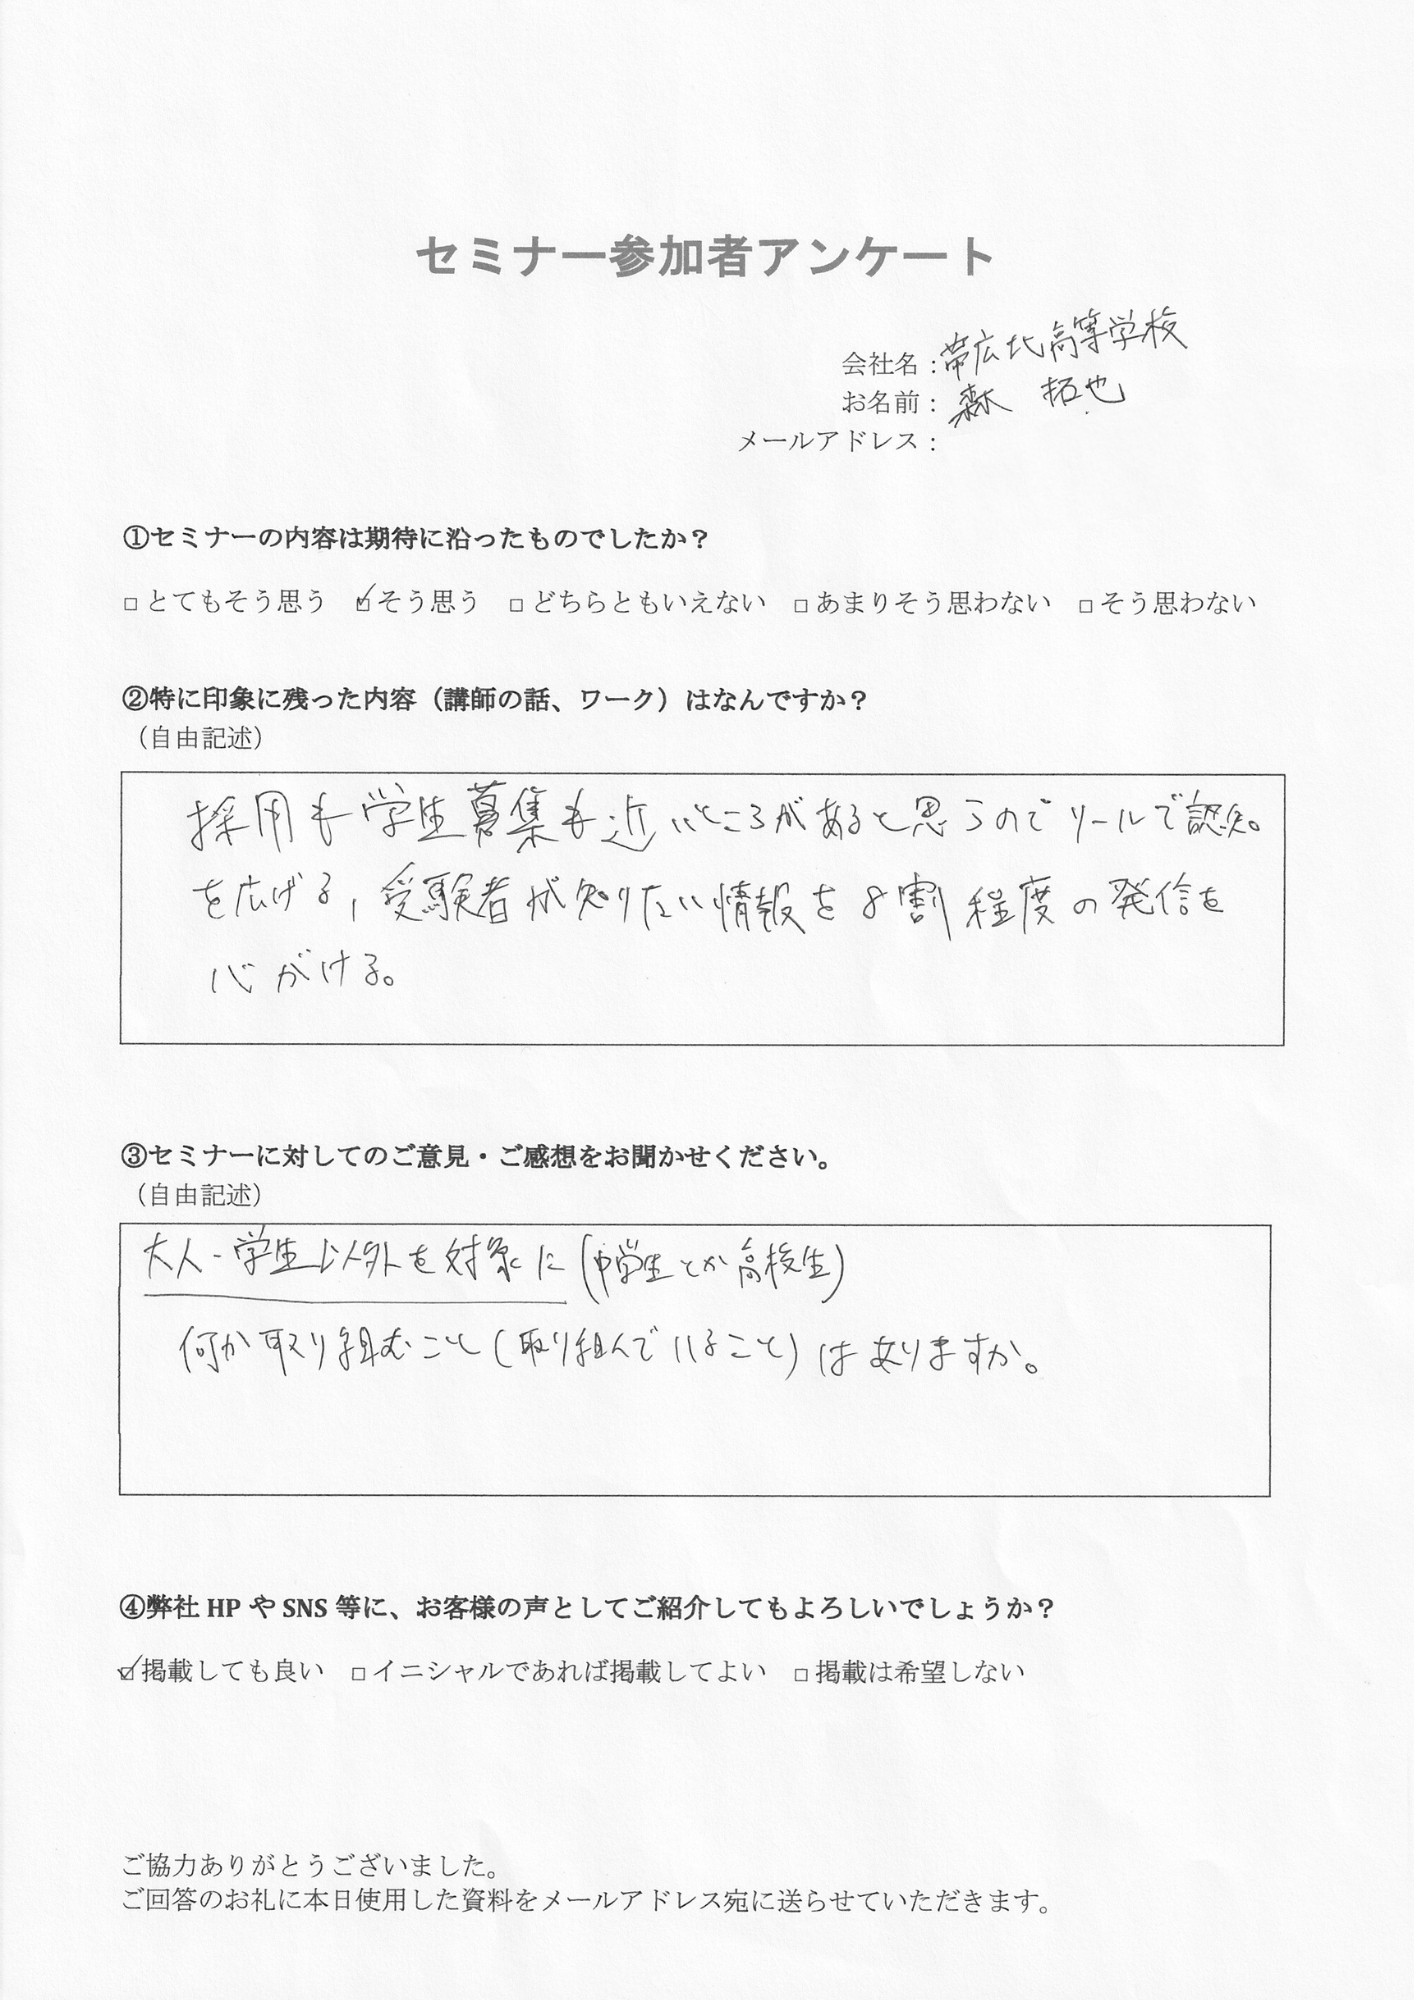 セミナー参加者アンケート
会社名：帯広北高等学校
お名前：森 拓也
メールアドレス：
①セミナーの内容は期待に沿ったものでしたか？
□とてもそう思う ☑そう思う □どちらともいえない □あまりそう思わない □そう思わない
②特に印象に残った内容（講師の話、ワーク）はなんですか？
（自由記述）
採用も学生募集も近いところがあると思うのでリールで認知
を広げる，受験者が知りたい情報を8割程度の発信を
心がける。
③セミナーに対してのご意見・ご感想をお聞かせください。
（自由記述）
大人・学生以外を対象に（中学生とか高校生）
何か取り組むこと（取り組んでいること）はありますか。
④弊社 HP や SNS 等に、お客様の声としてご紹介してもよろしいでしょうか？
☑掲載しても良い □イニシャルであれば掲載してよい □掲載は希望しない
ご協力ありがとうございました。
ご回答のお礼に本日使用した資料をメールアドレス宛に送らせていただきます。